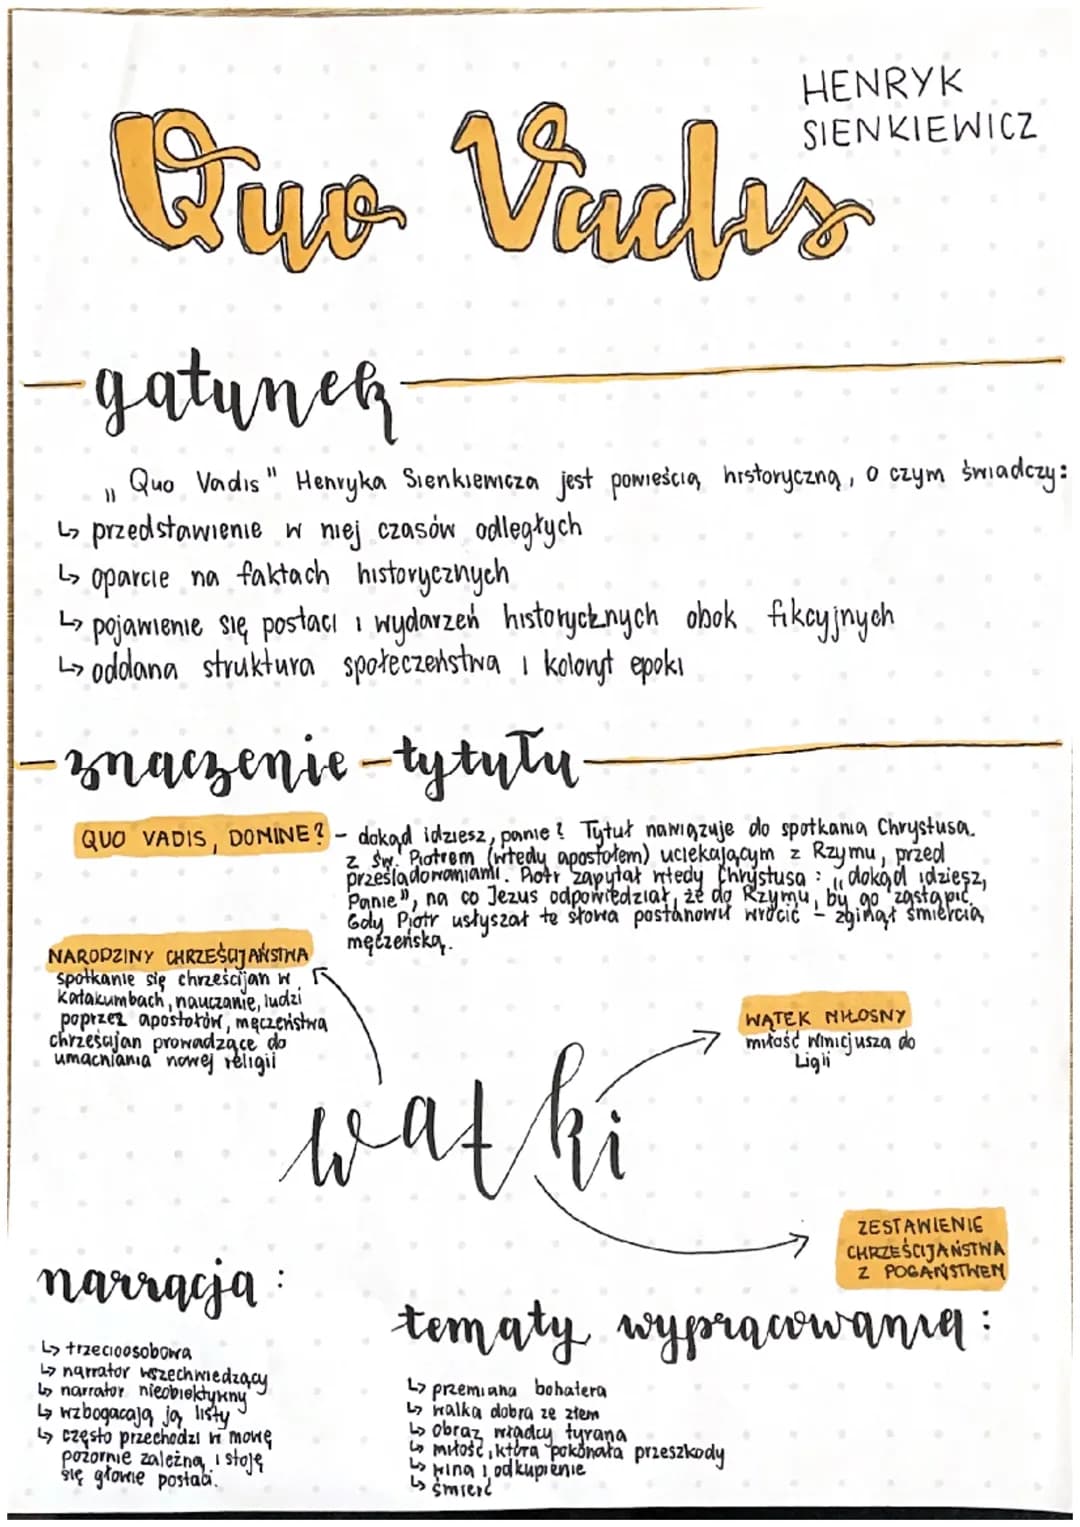 HENRYK
SIENKIEWICZ
Quo Vadis
gatunek
„Quo Vadis" Henryka Sienkiewicza jest powieścią historyczną, o czym świadczy:
↳ przedstawienie w niej czasów odległych
↳ oparcie na faktach historycznych
↳ pojawienie się postaci i wydarzeń historycznych obok fikcyjnych
↳ oddana struktura społeczeństwa i koloryt epoki
znaczenie tytułu
QUO VADIS, DOMINE? - dokąd idziesz, panie? Tytuł nawiązuje do spotkania Chrystusa.
z św. Piotrem (wtedy apostołem) uciekającym z Rzymu, przed
prześladowaniami. Piotr zapytał wtedy Chrystusa: „dokąd idziesz,
Panie", na co Jezus odpowiedział, że do Rzymu, by go zastąpić.
Gdy Piotr usłyszał te słowa postanowił wrócić - zginął śmiercią
męczeńską.
NARODZINY CHRZEŚCIJAŃSTWA
spotkanie się chrześcijan w
katakumbach, nauczanie, ludzi
poprzez apostołów, męczeństwa
chrześcijan prowadzące do
umacniania nowej religii
WĄTEK MIŁOSNY
miłość Winicjusza do
Ligii
wątki
ZESTAWIENIE
CHRZEŚCIJAŃSTWA
Z POGAŃSTWEM
narracja:
↳ trzecioosobowa
↳ narrator wszechwiedzący
↳ narrator nieobiektywny
↳ wzbogacają ją listy
↳ często przechodzi w mowę
pozornie zależną i stoję
się głowie postaci.
tematy wypracowania:
↳ przemiana bohatera
↳ walka dobra ze złem
↳ obraz władcy tyrana
↳ miłość, która pokonała przeszkody
↳ wina i odkupienie
↳ śmierć